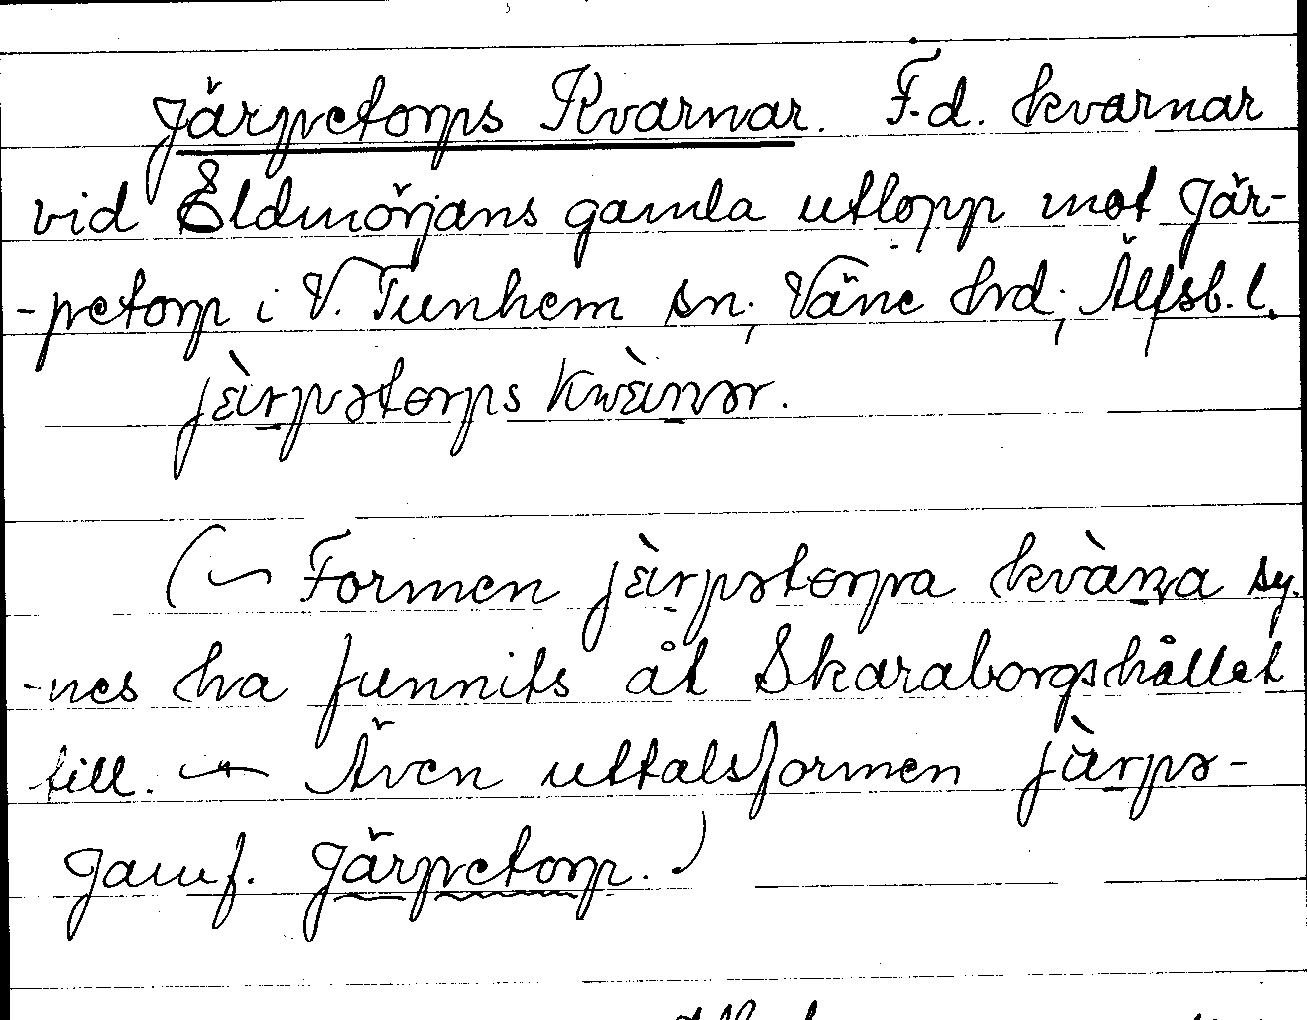 Järpetorps Kvarnar. F.d. kvarnar
vid Eldmörjans gamla utlopp mot Jär-
-petorp i V. Tunhem sn; Väne hrd; Älfsb. l.
jèirpətorps kwèinər.
(~ Formen jèirpətorpa kvàna sy-
-nes ha funnits åt Skaraborgshållet
till. — Även uttalsformen jàrpə-
Jamf. Järpetorp.)